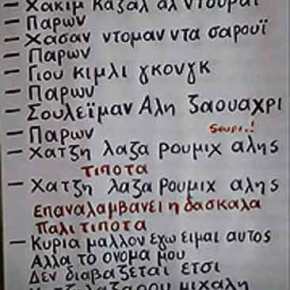 - Χακιμ καζαλ αλ ντουραι
- Παρων
- Χασαν ντομαν ντα σαρουϊ
- Παρων
- Γιου κιμλι γκονγκ
- Παρων
- Σουλεϊμαν Αλη ζαουαχρι
- Παρων
- Χατζη λαζα ρουμιχ αλης
τιποτα
- Χατζη λαζα ρουμιχ αλης
επαναλαμβανει η δασκαλα
παλι τιποτα
- Κυρια μαλλον εγω ειμαι αυτος
Αλλα το ονομα μου
Δεν διαβαζεται ετσι
λαζαρου μιχαλη